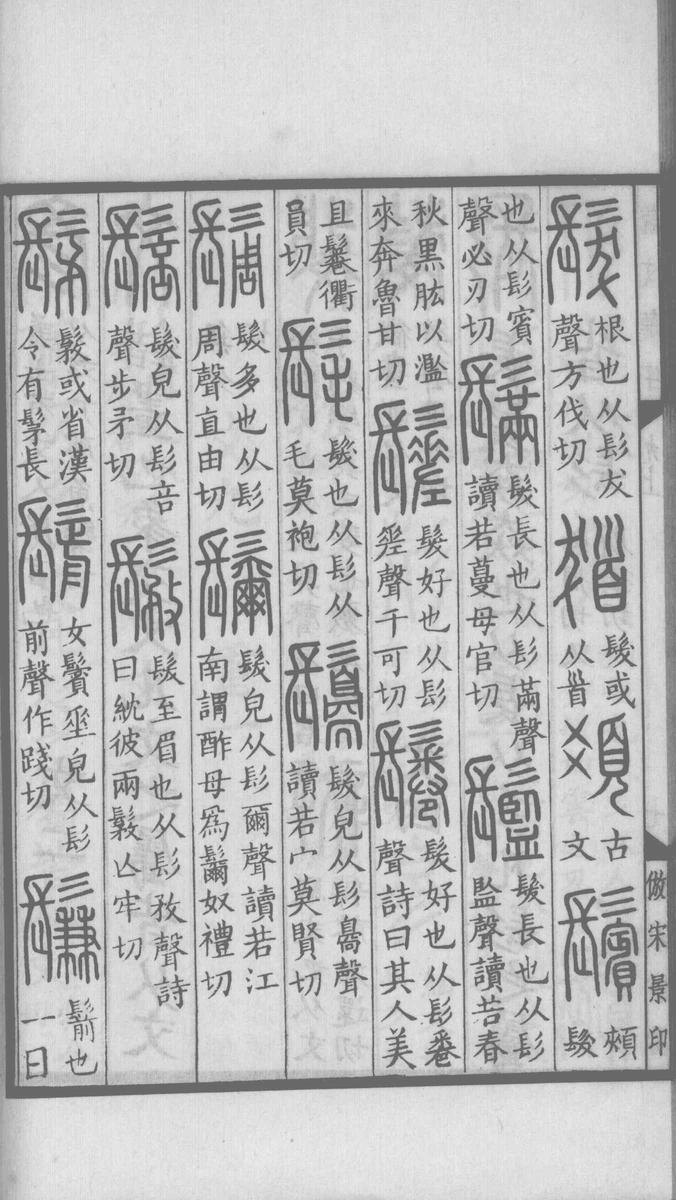 髮根也从髟犮聲方伐切𩠙髮或从𩠐𩑯古文鬢頰髮
也从髟賓聲必刃切鬗髮長也从髟㒼聲讀若蔓母官切䰐髮長也从髟監聲讀若春
秋黑肱以濫來奔魯甘切䰈髮好也从髟𢀩聲千可切鬈髮好也从髟卷聲詩曰其人美
且鬈衢員切髦髮也从髟从毛莫袍切髮皃从髟臱聲讀若宀莫賢切
䯾髮多也从髟周聲直由切髮皃从髟爾聲讀若江南謂酢母爲奴禮切
䯽髮皃从髟音聲步矛切𩭾髮至眉也从髟敄聲詩曰紞彼兩𩭾亡牢切
髳𩭾或省漢令有髳長鬋女鬢垂皃从髟前聲作踐切鬑鬋也一曰
倣宋景印